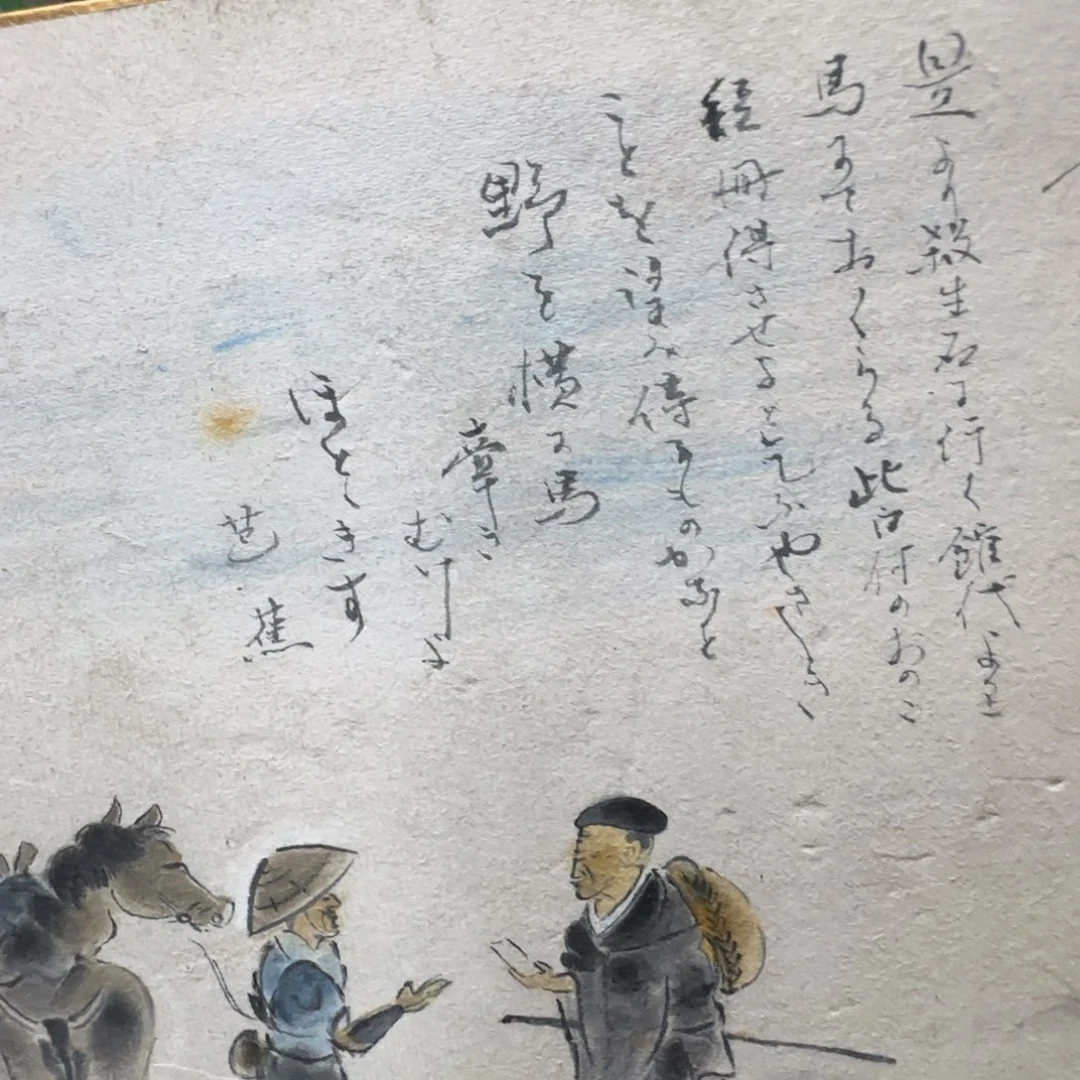 是より殺生石に行く館代より
馬にておくらる此口付のおのこ
短冊得させよとこふやさしき
ことを望み侍るものかなと
野を横に馬
牽き
むけよ
ほとゝきす
芭蕉